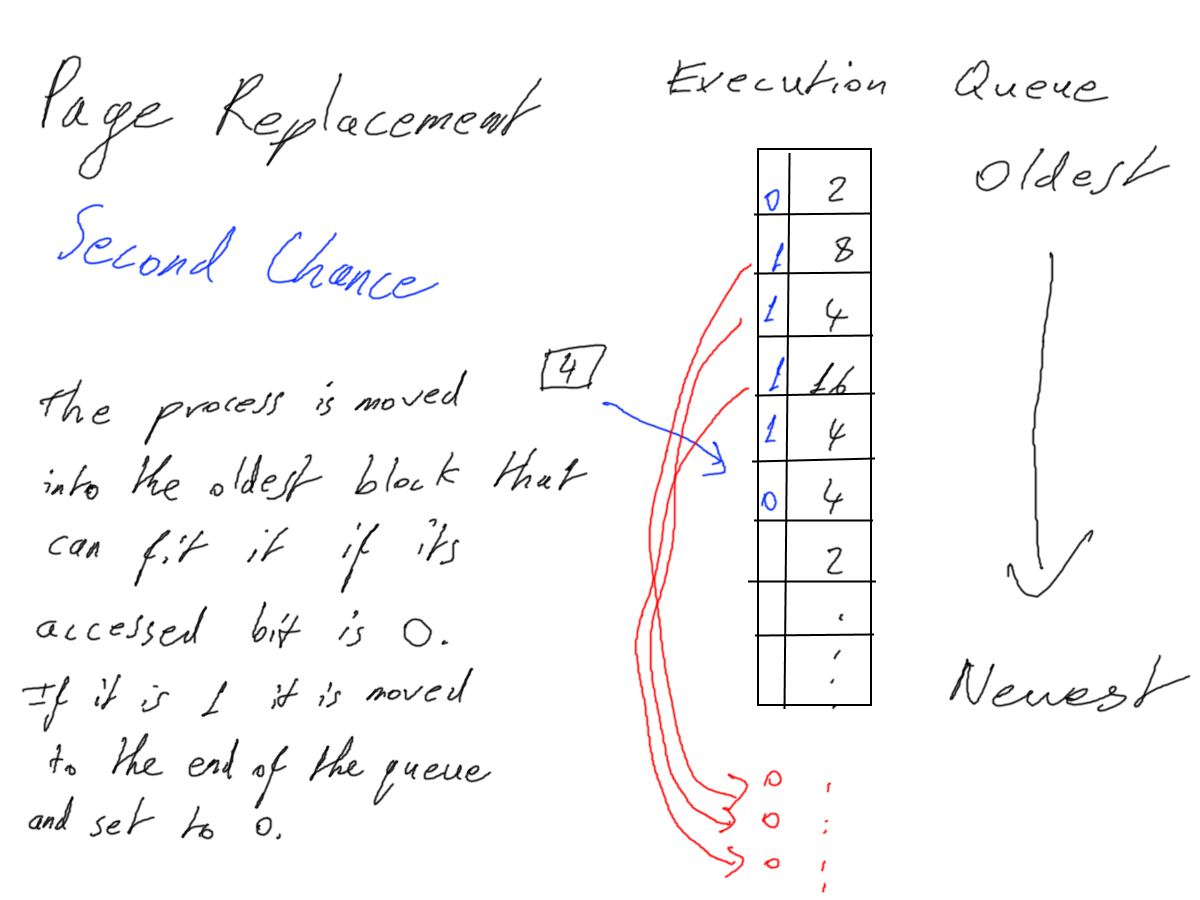 Page Replacement
Second Chance
the process is moved
into the oldest block that
can fit it if its
accessed bit is 0.
If it is 1 it is moved
to the end of the queue
and set to 0.
4
Execution Queue
Oldest
0 2
1 8
1 4
1 16
1 4
0 4
2
Newest
0
0
0